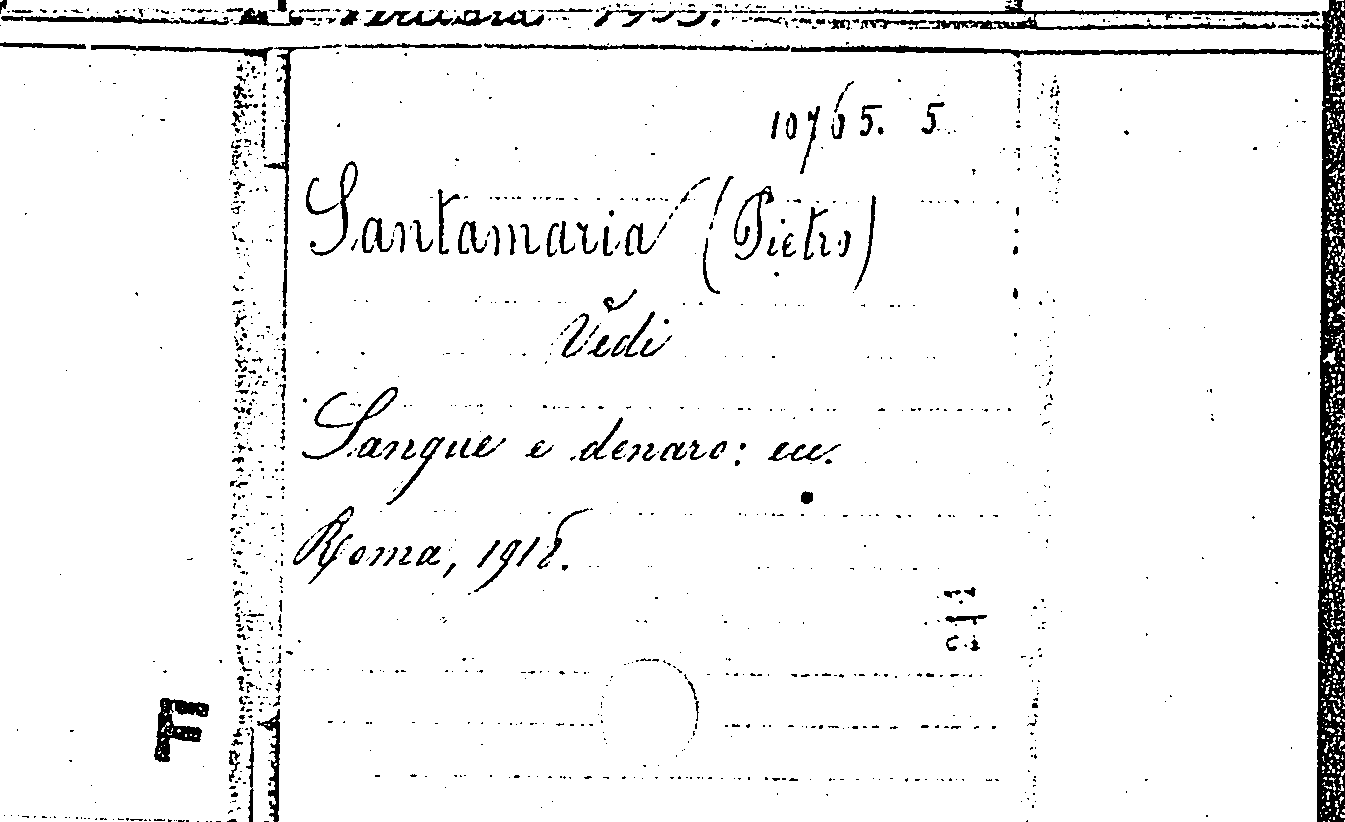 1913.
10765. 5
Santamaria (Pietro)
Vedi
Sangue e denaro: ecc.
Roma, 1918.